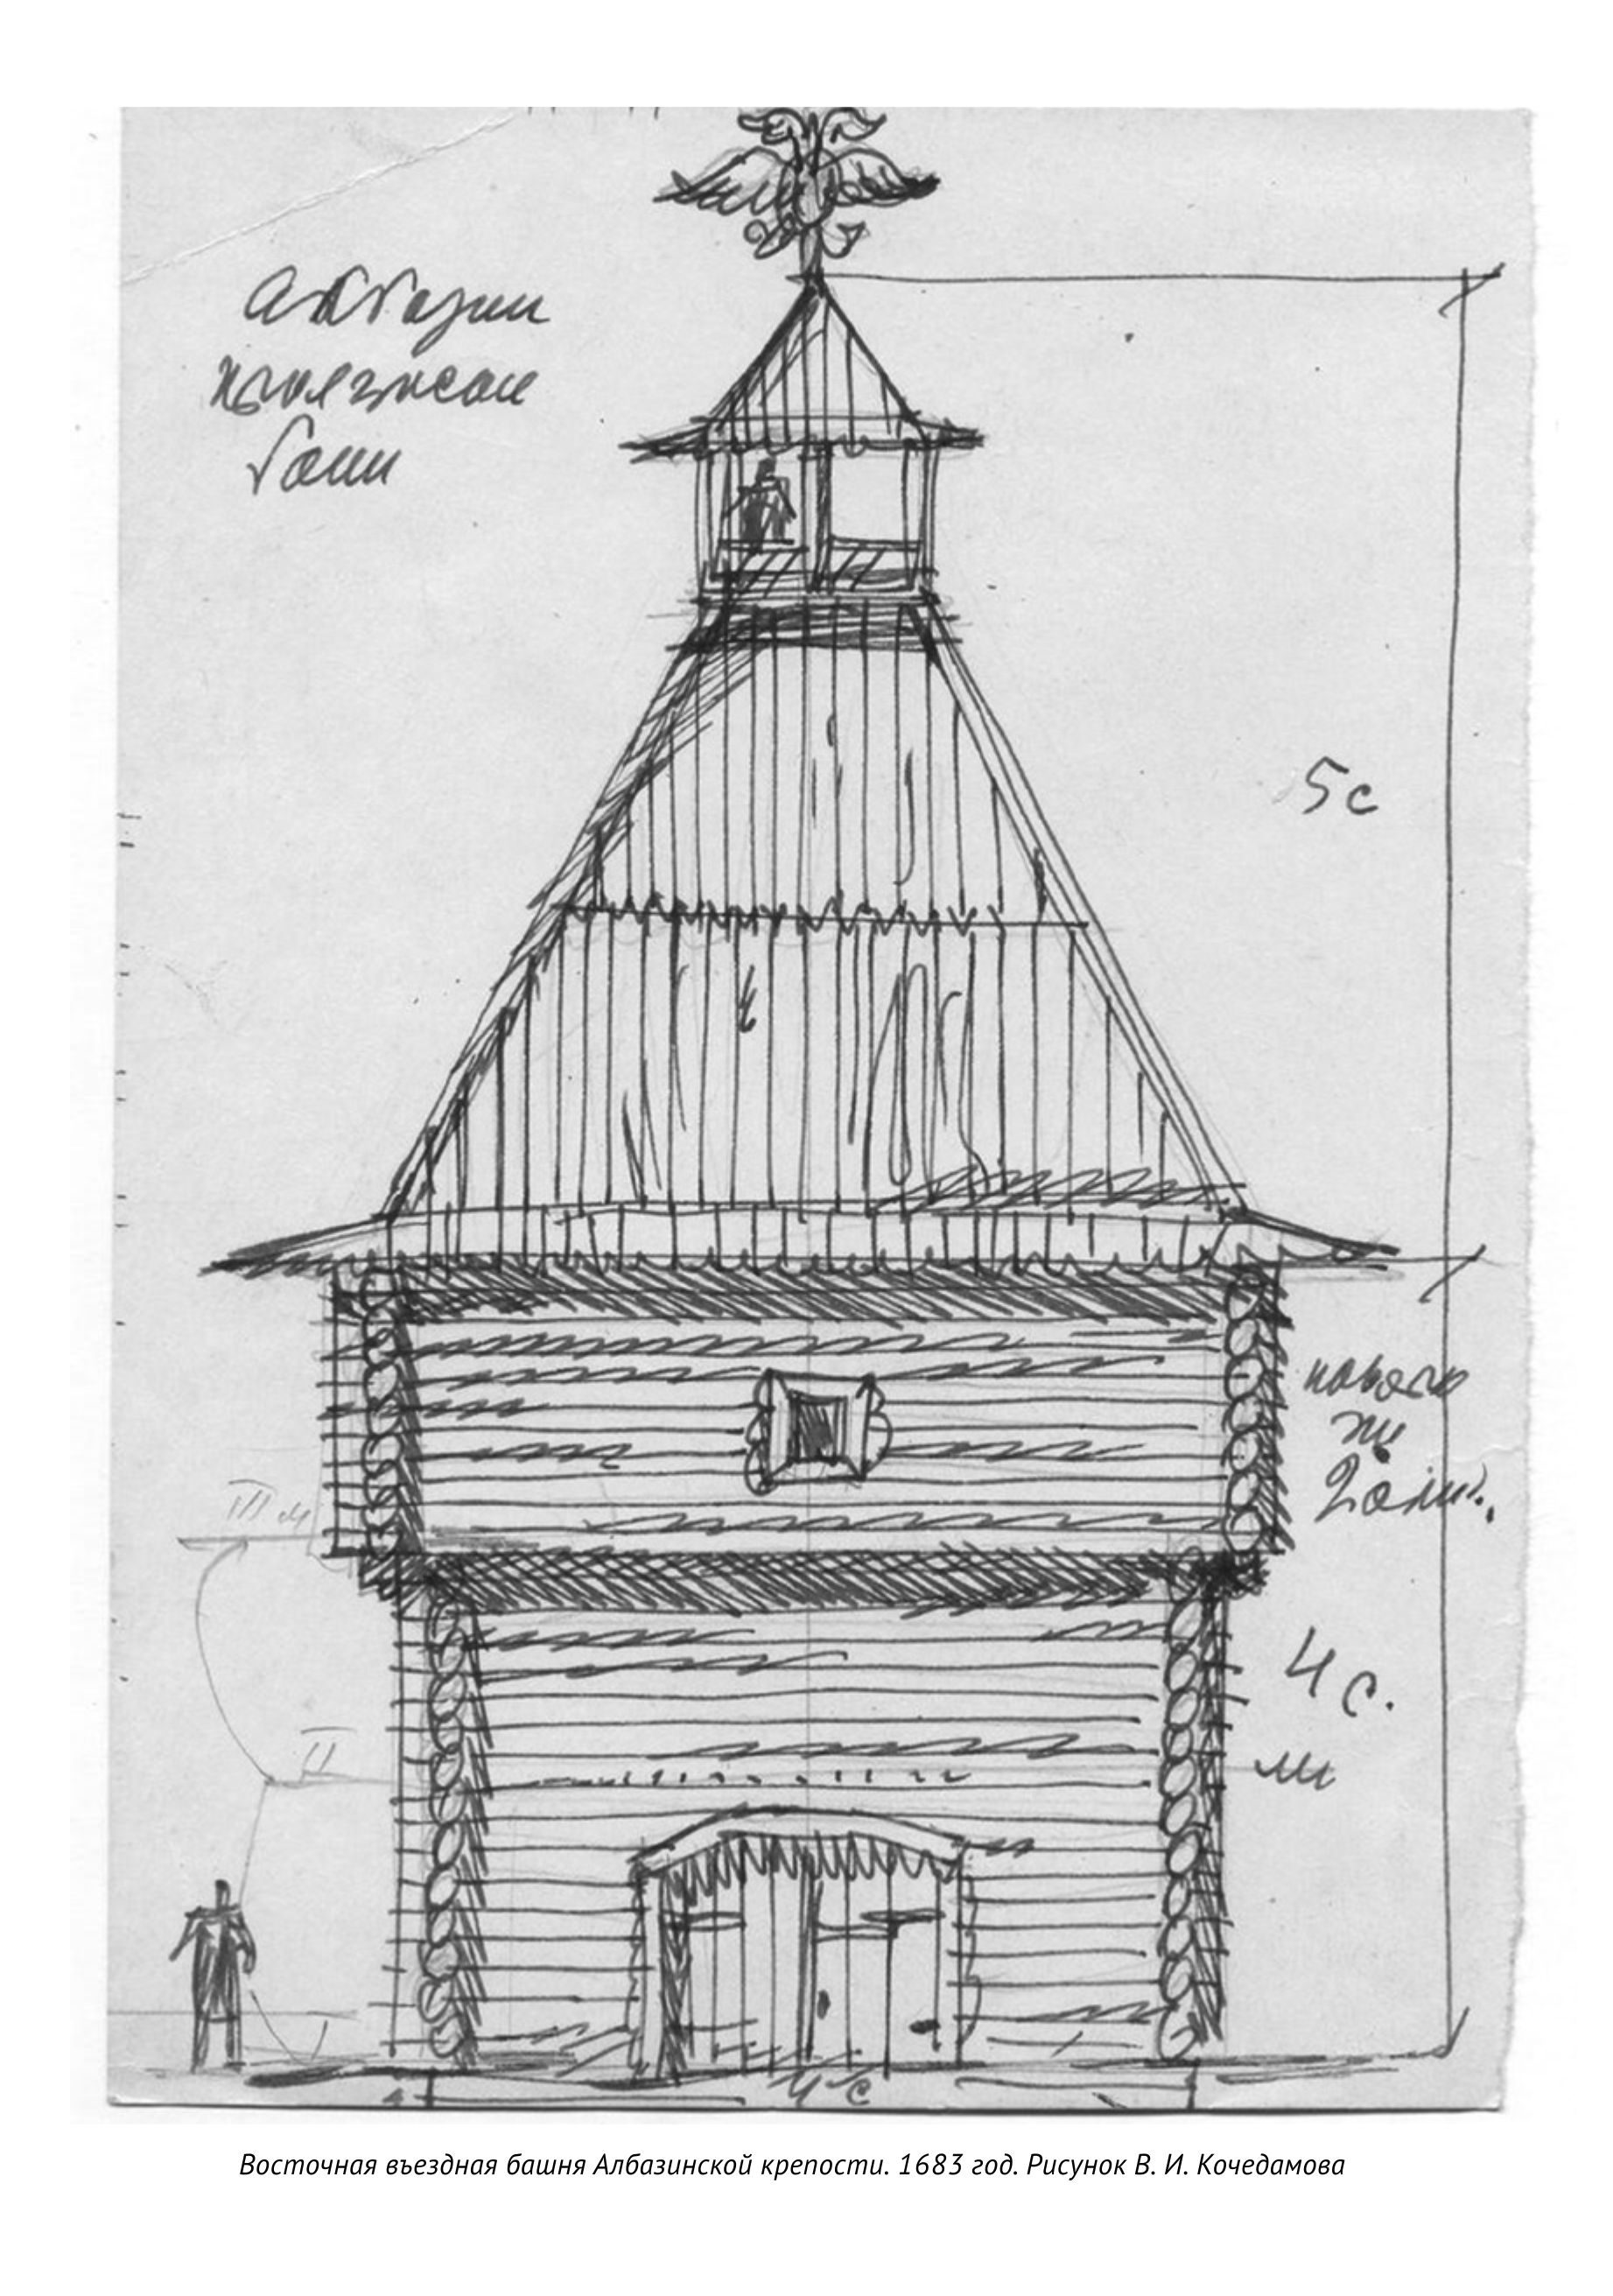 Албазин
проезжая
башн
5 с
4 с.
III м
II
4 с
Восточная въездная башня Албазинской крепости. 1683 год. Рисунок В. И. Кочедамова